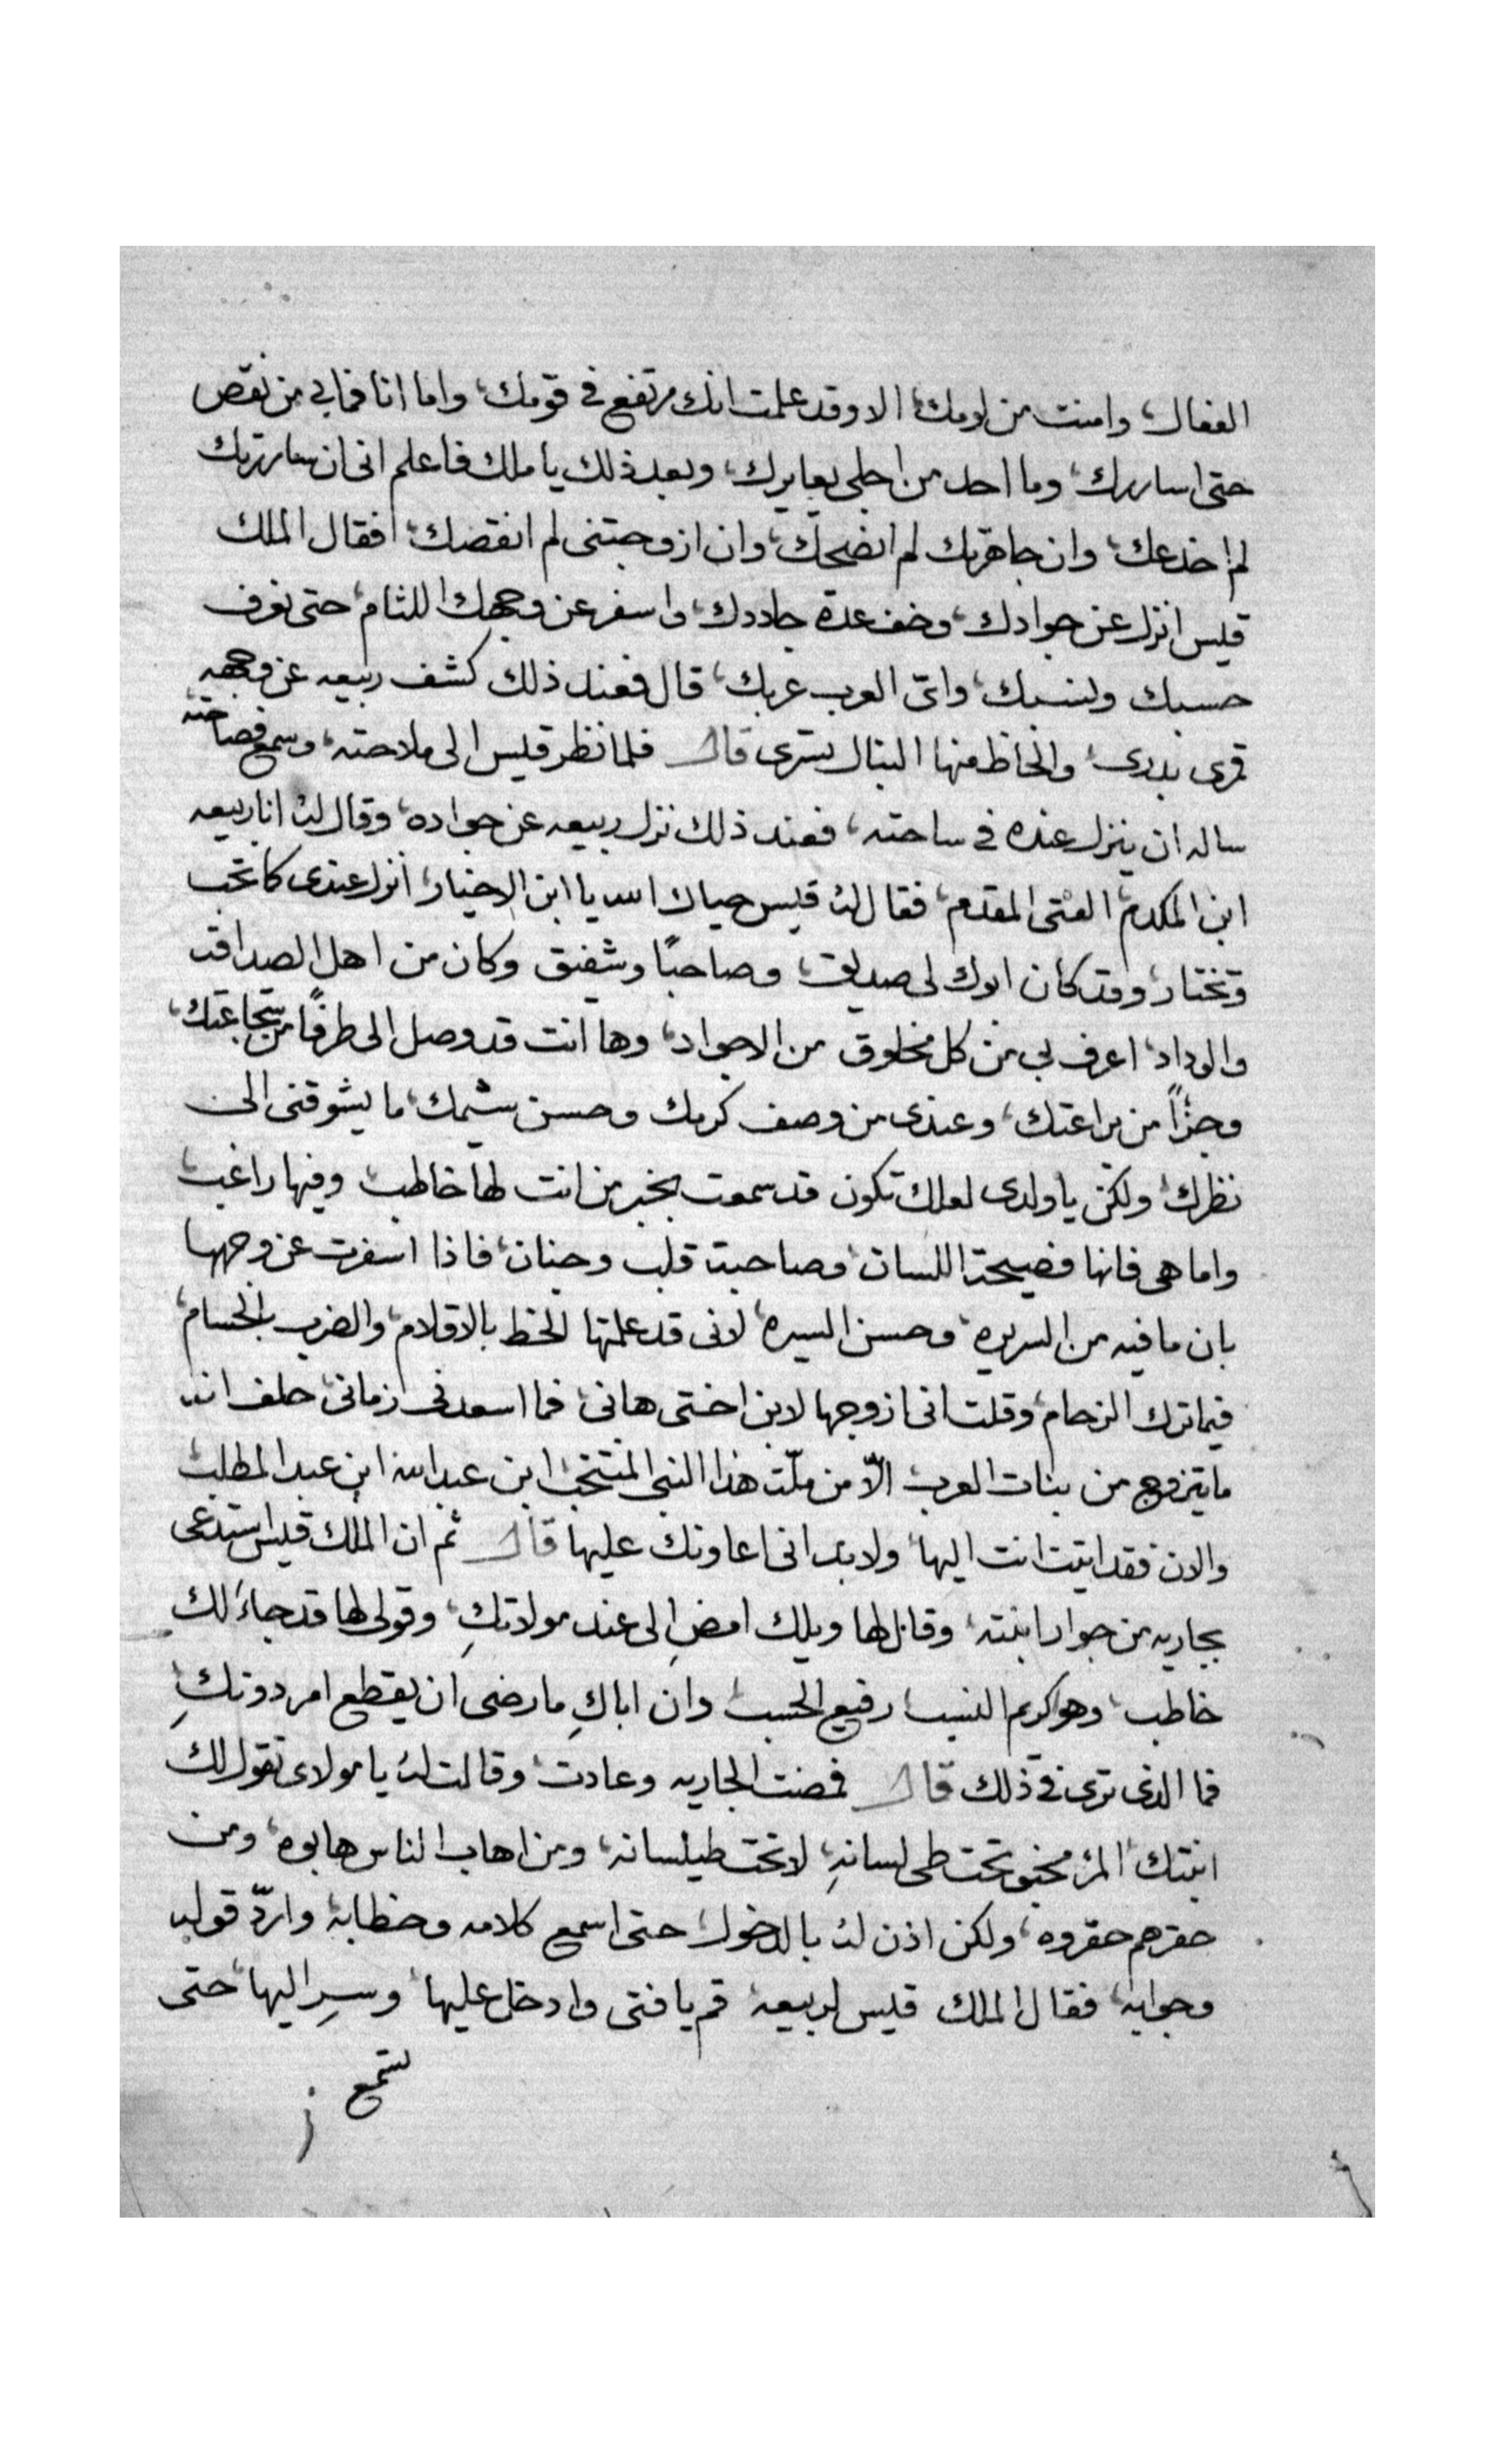 الفعال، وامنت من لومك، الا وقد علمت انك مرتفع فى قومك، واما انا فما بي من نقص
حتى اساررك، وما احد من اجلى يعايرك، وبعد ذلك يا ملك فاعلم انى ان ساررتك
لم اخدعك، وان جاهرتك لم افضحك، وان ازوجتنى لم انقصك، فقال الملك
قيس انزل عن جوادك، وخفف عدة جلادك، واسفر عن وجهك اللثام، حتى نعرف
حسبك ونسبك، واىّ العرب عربك، قال فعند ذلك كشف ربيعه عن وجهه
قمرى بدرى، والحاظ منها النبال تسرى قال فلما نظر قيس الى ملاحته، وسمع فصاحته
ساله ان ينزل عنده فى ساحته، فعند ذلك نزل ربيعه عن جواده، وقال له انا ربيعه
ابن المكدم، الفتى المقدم، فقال له قيس حياك الله يا ابن الاخيار، انزل عندى كما تحب
وتختار، وقد كان ابوك لى صديق، وصاحبًا وشفيق وكان من اهل الصداقه
والوداد، اعرف بي من كل مخلوق من الاجواد، وها انت قد وصل الى طرفًا من شجاعتك،
وجزاً من براعتك، وعندى من وصف كرمك وحسن شيمك، ما يشوقنى الى
نظرك، ولكن يا ولدى لعلك تكون قد سمعت بخبر من انت لها خاطب، وفيها راغب،
واما هى فانها فصيحة اللسان، وصاحبة قلب وجنان، فاذا اسفرت عن وجهها
بان ما فيه من السريره، وحسن السيره، لانى قد علمتها الخط بالاقلام، والضرب بالحسام،
فيما ترك الزحام، وقلت انى ازوجها لابن اختى هانى، فما اسعدنى زمانى، حلف انه
ما يتزوج من بنات العرب الّا من ملّت هذا النبى المنتخب ابن عبد الله ابن عبد المطلب،
والان فقد اتيت انت اليها، ولا بد انى اعاونك عليها قال ثم ان الملك قيس استدعى
بجاريه من جوار ابنته، وقال لها ويلك امضِ الى عند مولاتكِ، وقولى لها قد جاءَ لك
خاطب، وهو كريم النسب، رفيع الحسب، وان اباكِ ما رضى ان يقطع امر دونكِ،
فما الذى ترى فى ذلك قال فمضت الجاريه وعادت، وقالت له يا مولاى تقول لك
ابنتك، المرء مخبو تحت طى لسانهِ، لا تحت طيلسانه، ومن اهاب الناس هابوه، ومن
حقرهم حقروه، ولكن اذن له بالدخول، حتى اسمع كلامه وخطابه، واردّ قوله
وجوابه، فقال الملك قيس لربيعه، قم يا فتى وادخل عليها، وسِر اليها، حتى
تسمع